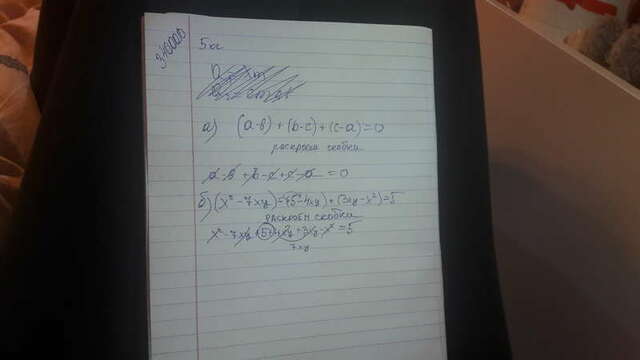 340000
5кл
а) (a-b) + (b-c) + (c-a) = 0
раскроем скобки
a-b + b-c + c-a = 0
б) (x² - 7xy) = (5-4xy) + (3xy-x²) = 5
раскроем скобки
x² - 7xy + 5 + 4xy + 3xy - x² = 5
7xy